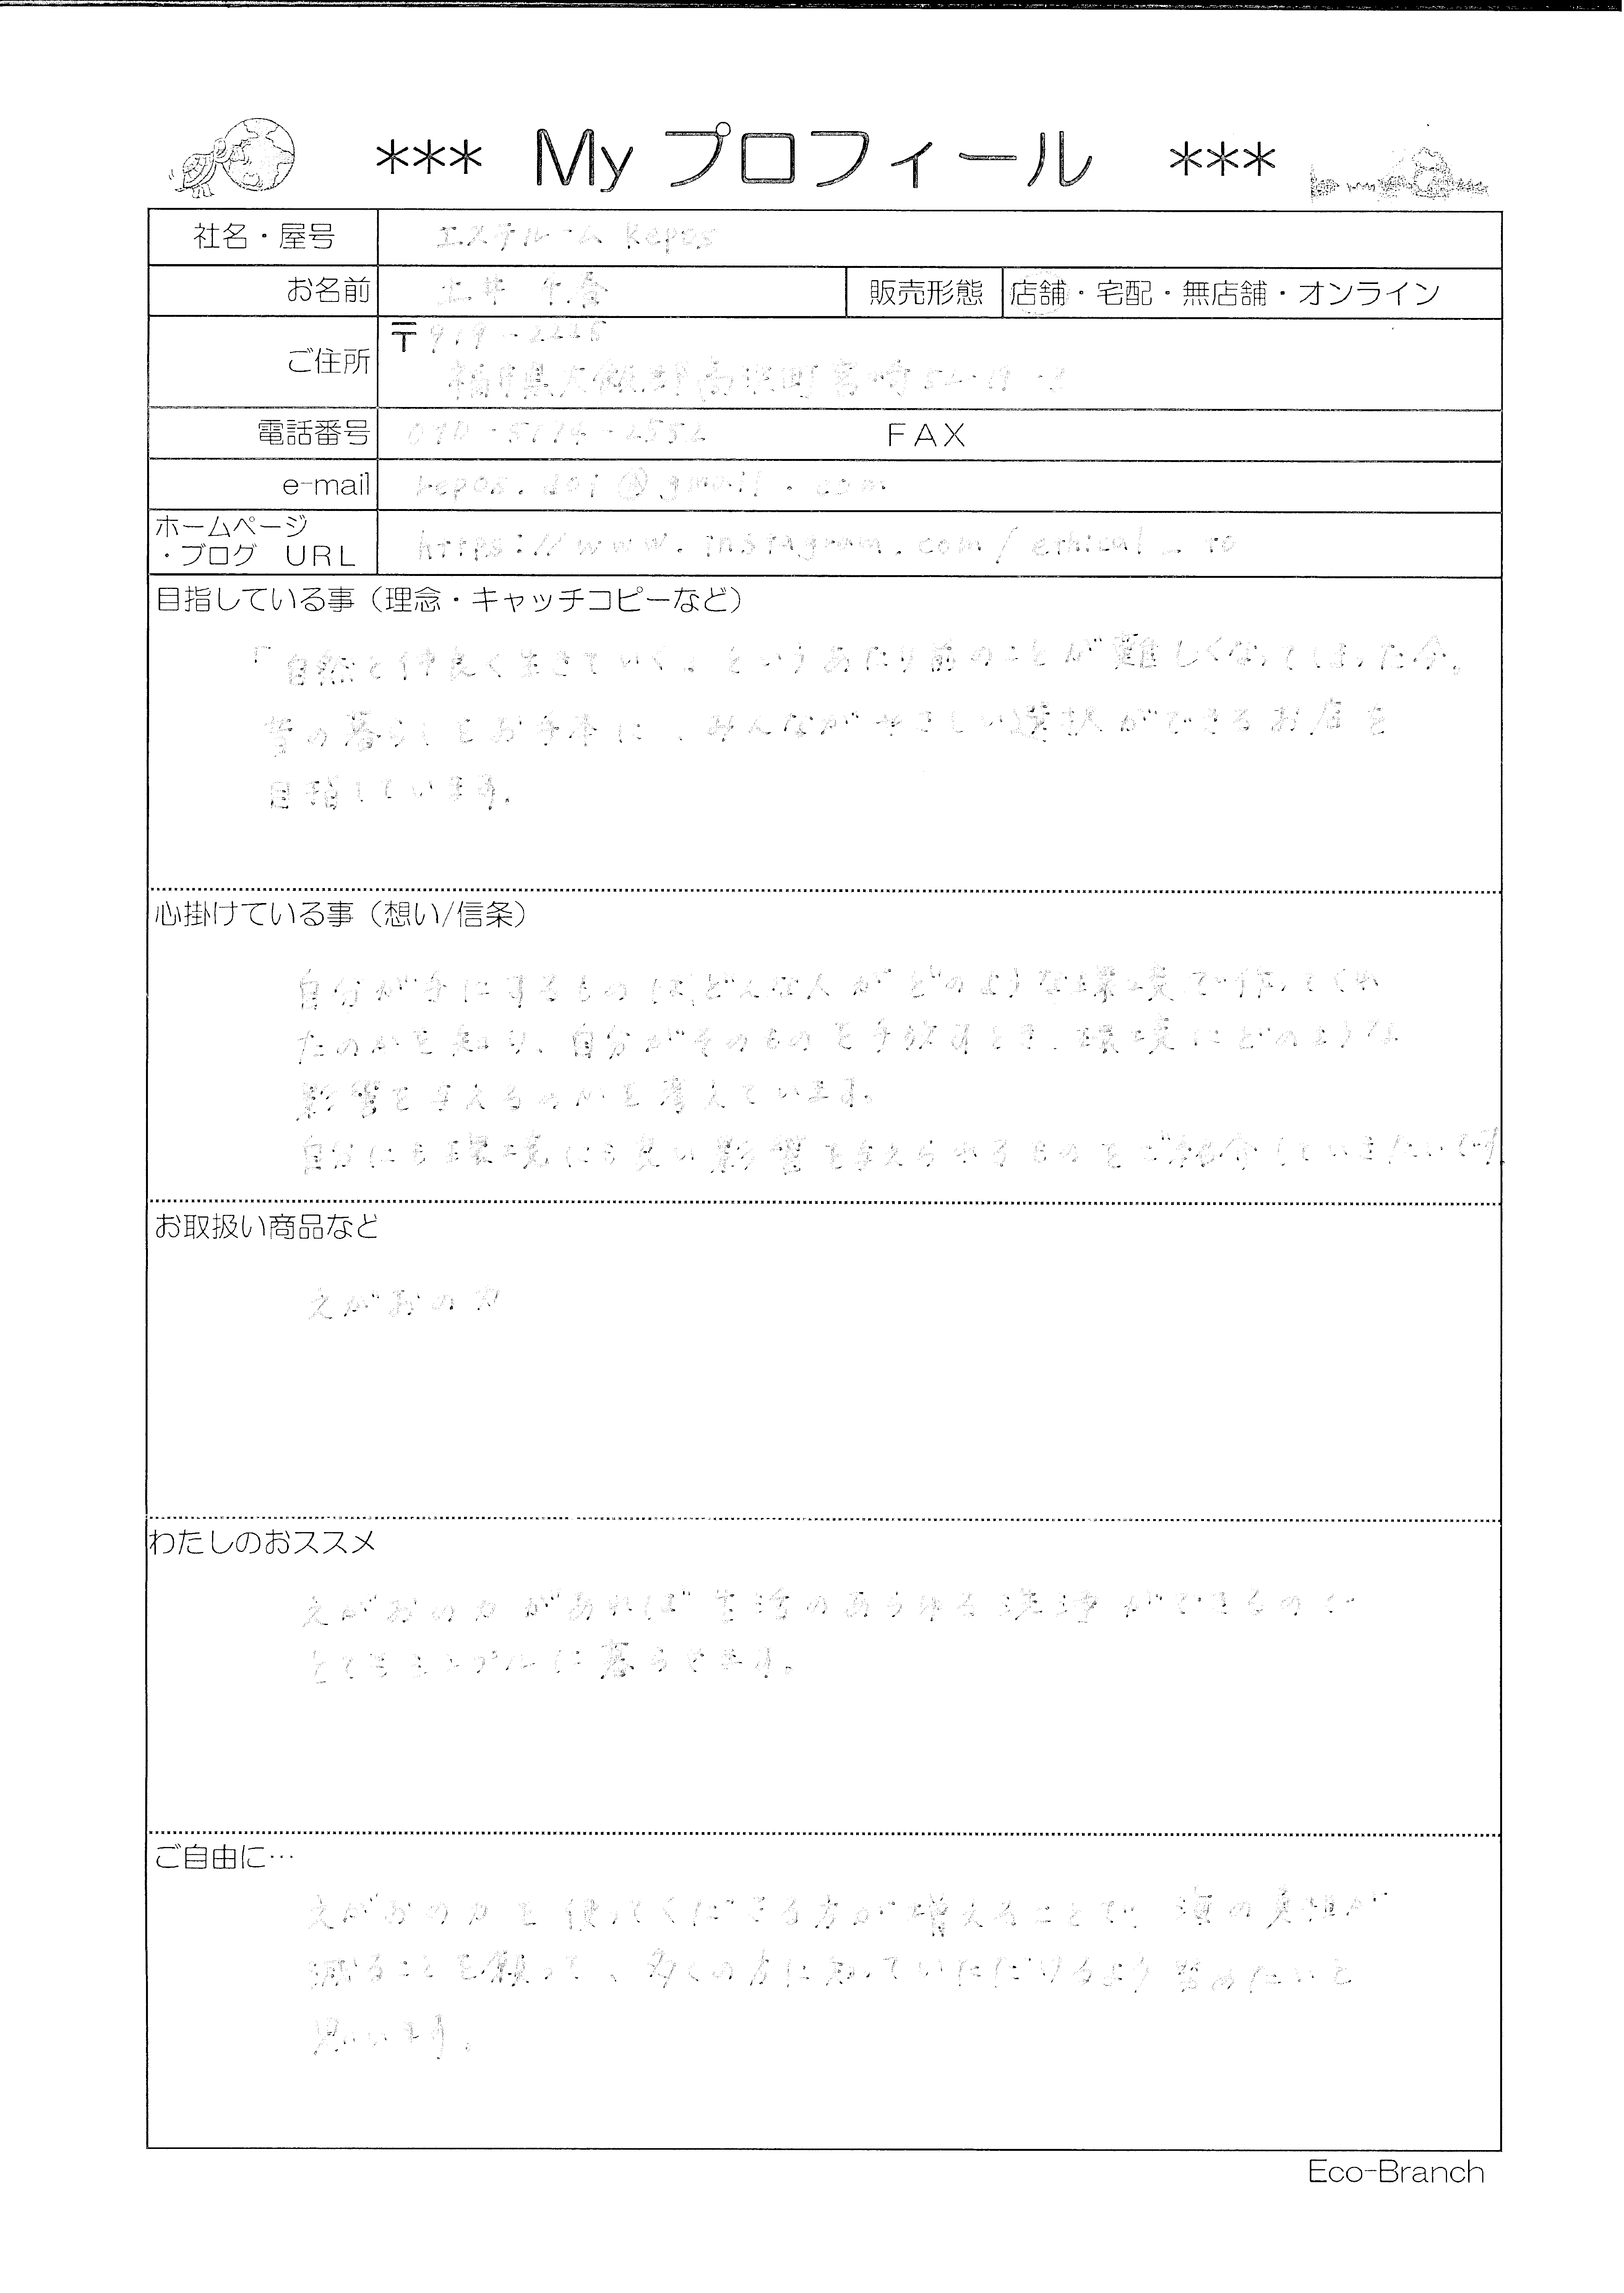 *** My プロフィール ***
社名・屋号 エステルーム Kepos
お名前 土井 販売形態 店舗・宅配・無店舗・オンライン
ご住所 〒919-
福井県大飯郡高浜町宮崎
電話番号 FAX
e-mail kepos.doi@gmail.com
ホームページ
・ブログ URL https://www.instagram.com/ethical_ro
目指している事（理念・キャッチコピーなど）
「自然と仲良く生きていく」というあたり前のことが難しくなってしまった今。
昔の暮らしをお手本に、みんながやさしい選択ができるお店を
目指しています。
心掛けている事（想い/信条）
自分が手にするものは、どんな人がどのような環境で作ってくれ
たのかを知り、自分がそのものを手放すとき、環境にどのような
影響を与えるのかを考えています。
自分にも環境にも良い影響を与えられるものをご紹介していきたいです
お取扱い商品など
えがおの力
わたしのおススメ
えがおの力があれば生活のあらゆる洗浄ができるので
とてもシンプルに暮らせます。
ご自由に…
えがおの力を使ってくださる方が増えることで、海の負担が
減ることを願って、多くの方に知っていただけるよう努めたいと
思います。
Eco-Branch